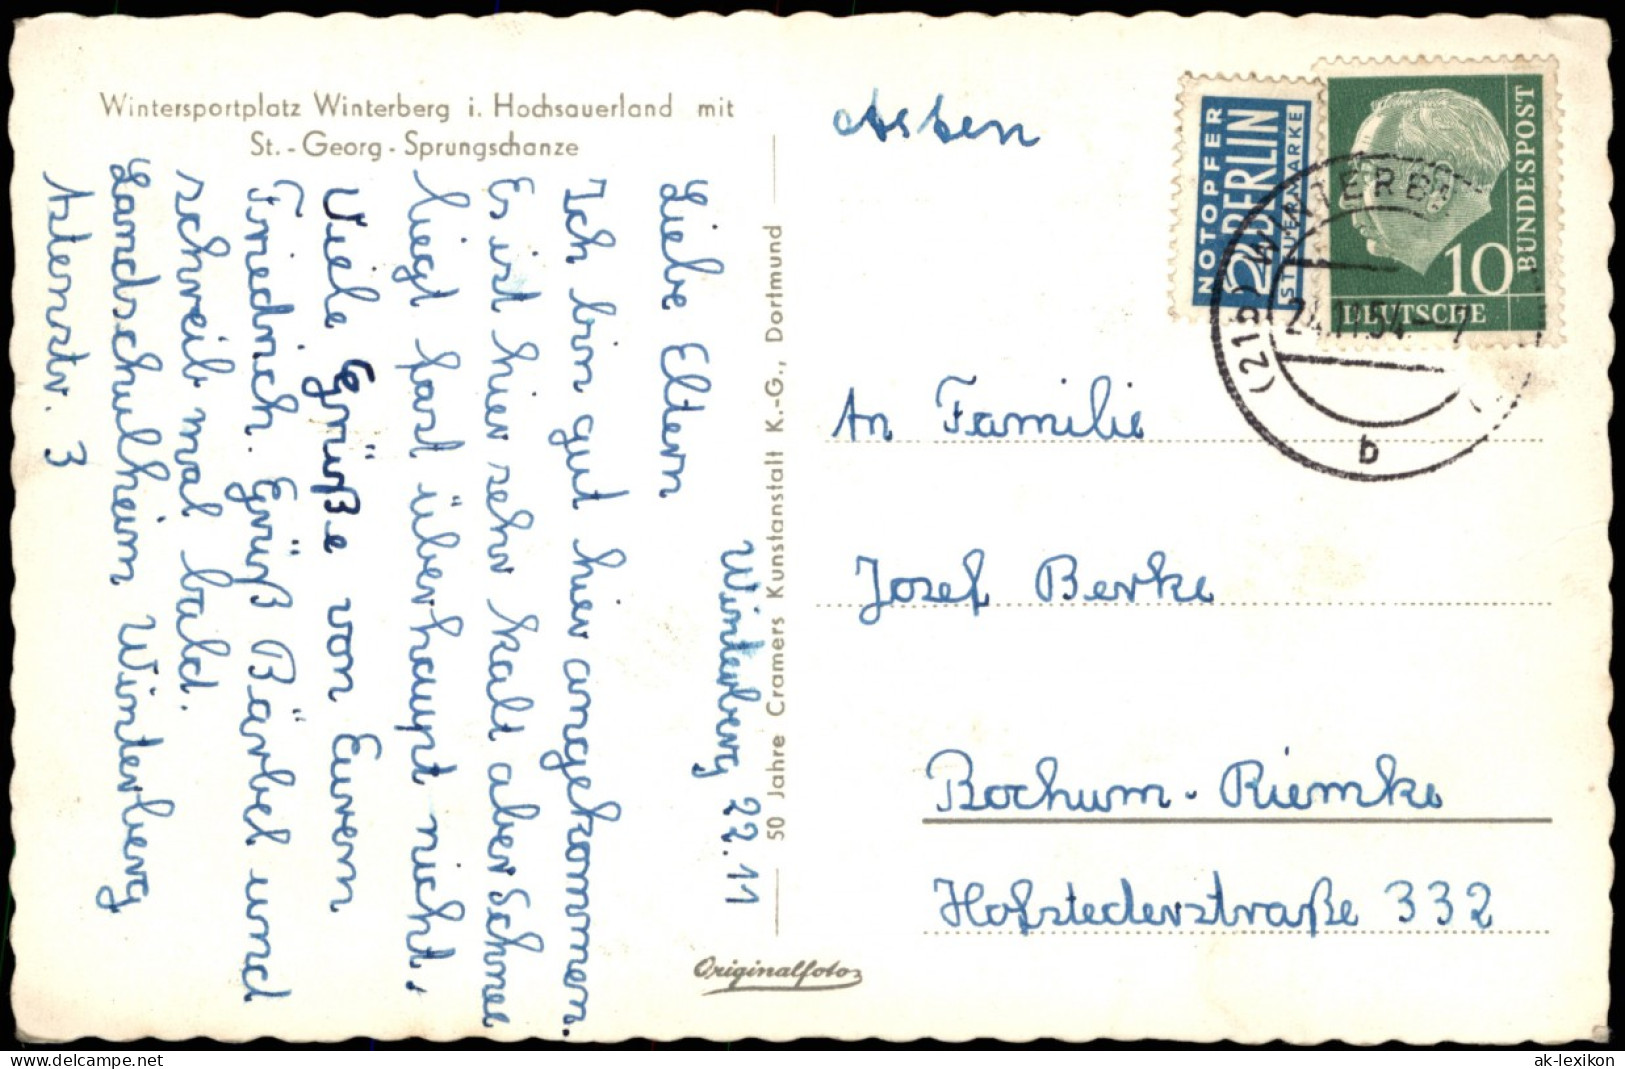 Wintersportplatz Winterberg i. Hochsauerland mit
St.-Georg-Sprungschanze
Winterberg 22.11
Liebe Eltern
Ich bin gut hier angekommen.
Es ist hier sehr kalt aber Schnee
liegt fast überhaupt nicht.
Viele Grüße von Eurem
Friedrich. Grüß Bärbel und
schreib mal bald.
Landschulheim Winterberg
Astenstr. 3
50 Jahre Cramers Kunstanstalt K.-G., Dortmund
Originalfoto
NOTOPFER
2 BERLIN
STEUERMARKE
BUNDESPOST
10
DEUTSCHE
(21b) WINTERBE
24.11.54--7
b
An Familie
Josef Berke
Bochum-Riemke
Hofstederstraße 332
ak-lexikon